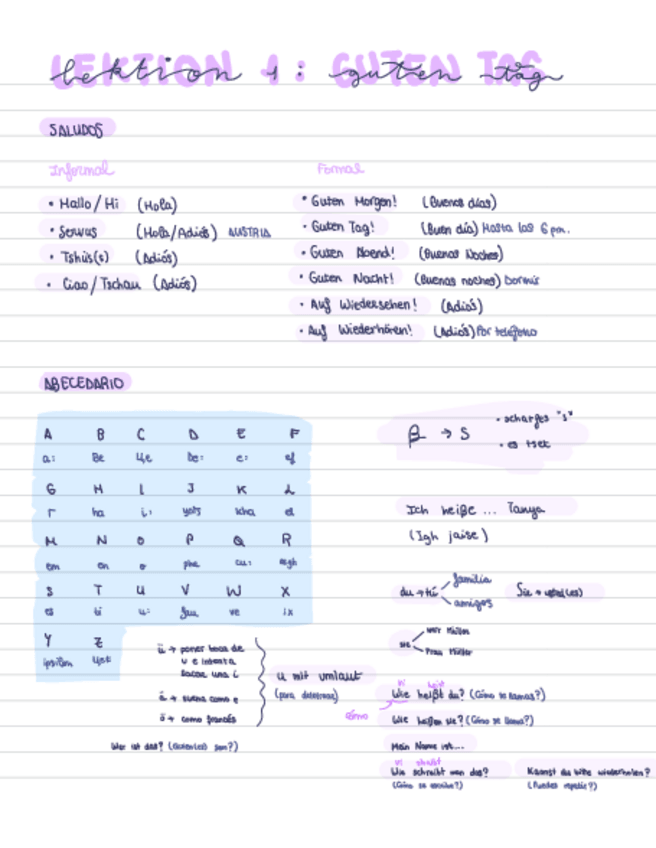 LEKTION 1: GUTEN TAG
Lektion 1: guten tag
SALUDOS
Informal
• Hallo/Hi (Hola)
• Servus (Hola/Adiós) AUSTRIA
• Tshüs(s) (Adiós)
• Ciao/Tschau (Adiós)
Formal
• Guten Morgen! (Buenos días)
• Guten Tag! (Buen día) Hasta las 6 pm.
• Guten Abend! (Buenas Noches)
• Guten Nacht! (Buenas noches) Dormir
• Auf Wiedersehen! (Adiós)
• Auf Wiederhören! (Adiós) Por teléfono
ABECEDARIO
A B C D E F
a: Be be: e: ef
G H I J K L
ha i: el
M N O P Q R
em en o cu:
S T U V W X
es u: ve ix
Y Z
ipsilon
ß → S
• scharfes "s"
Ich heiße ... Tanya
(Igh jaise)
du → tú
familia
amigos
Sie → usted(es)
sie
ü → poner boca de
u e intenta
sacar una i
ä → suena como e
ö → como francés
u mit umlaut
(para deletrear)
Wer ist das? (son?)
vi
Wie heißt du? (Cómo te llamas?)
cómo
Wie heißen sie? (Cómo se llama?)
Mein Name ist...
vi
Wie schreibt man das?
(Cómo se escribe?)
Kannst du bitte wiederholen?
(Puedes repetir?)